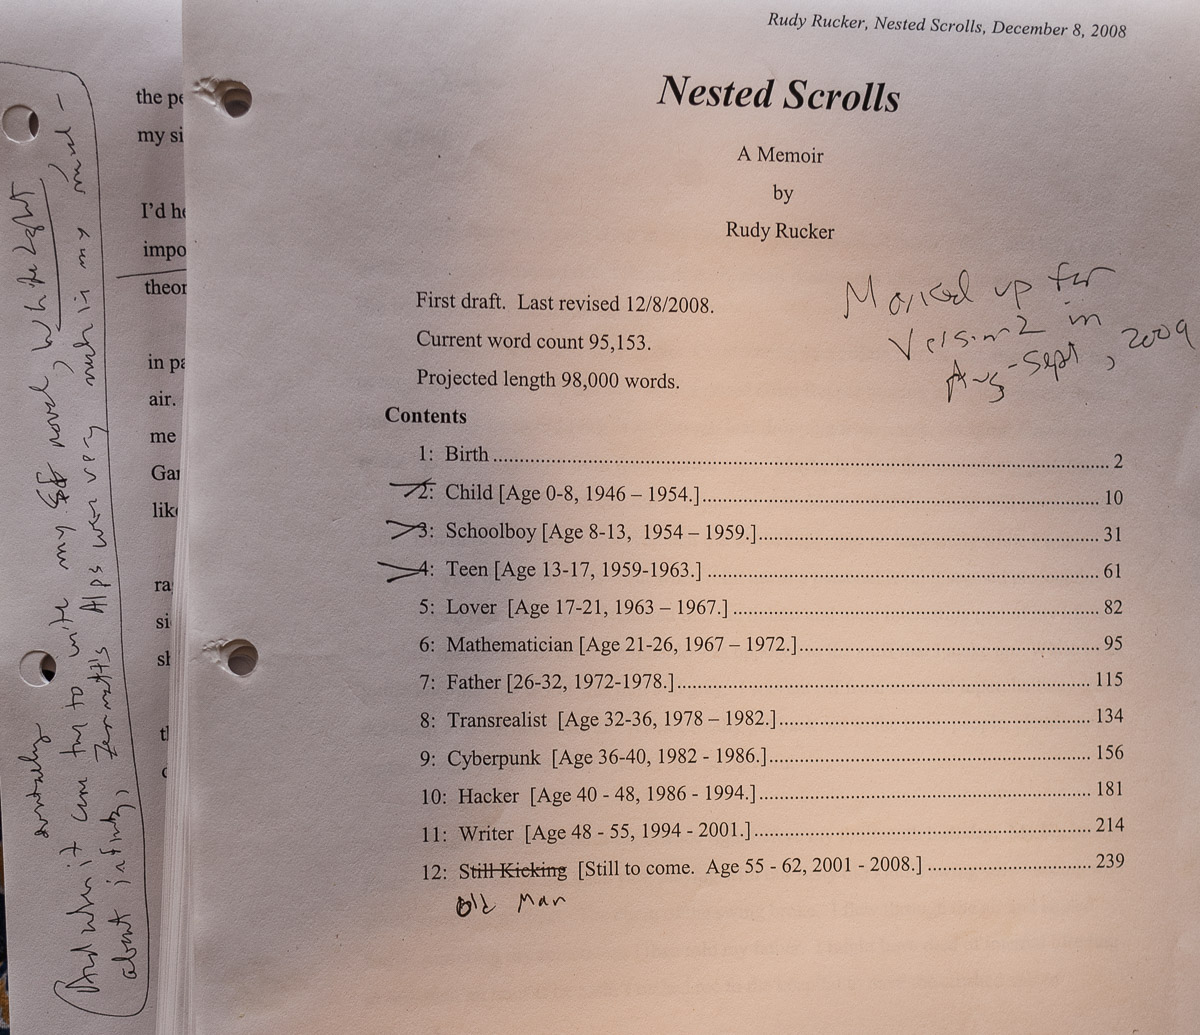 Rudy Rucker, Nested Scrolls, December 8, 2008
Nested Scrolls
A Memoir
by
Rudy Rucker
First draft.  Last revised 12/8/2008.
Current word count 95,153.
Projected length 98,000 words.
Marked up for
Version 2 in
Aug-Sept, 2009
Contents
1: Birth ........ 2
2: Child [Age 0-8, 1946 – 1954.] ........ 10
3: Schoolboy [Age 8-13,  1954 – 1959.] ........ 31
4: Teen [Age 13-17, 1959-1963.] ........ 61
5: Lover  [Age 17-21, 1963 – 1967.] ........ 82
6: Mathematician [Age 21-26, 1967 – 1972.] ........ 95
7: Father [26-32, 1972-1978.] ........ 115
8: Transrealist  [Age 32-36, 1978 – 1982.] ........ 134
9: Cyberpunk  [Age 36-40, 1982 - 1986.] ........ 156
10: Hacker  [Age 40 - 48, 1986 - 1994.] ........ 181
11: Writer  [Age 48 - 55, 1994 - 2001.] ........ 214
12: Still Kicking  [Still to come.  Age 55 - 62, 2001 - 2008.] ........ 239
Old Man
the pe
my si
I'd he
impo
theor
in pa
air.
me
Gar
like
ra
si
sh
eventually
And when it came time to write my SF novel, White Light,
about infinity, Zermatt's Alps were very much in my mind –